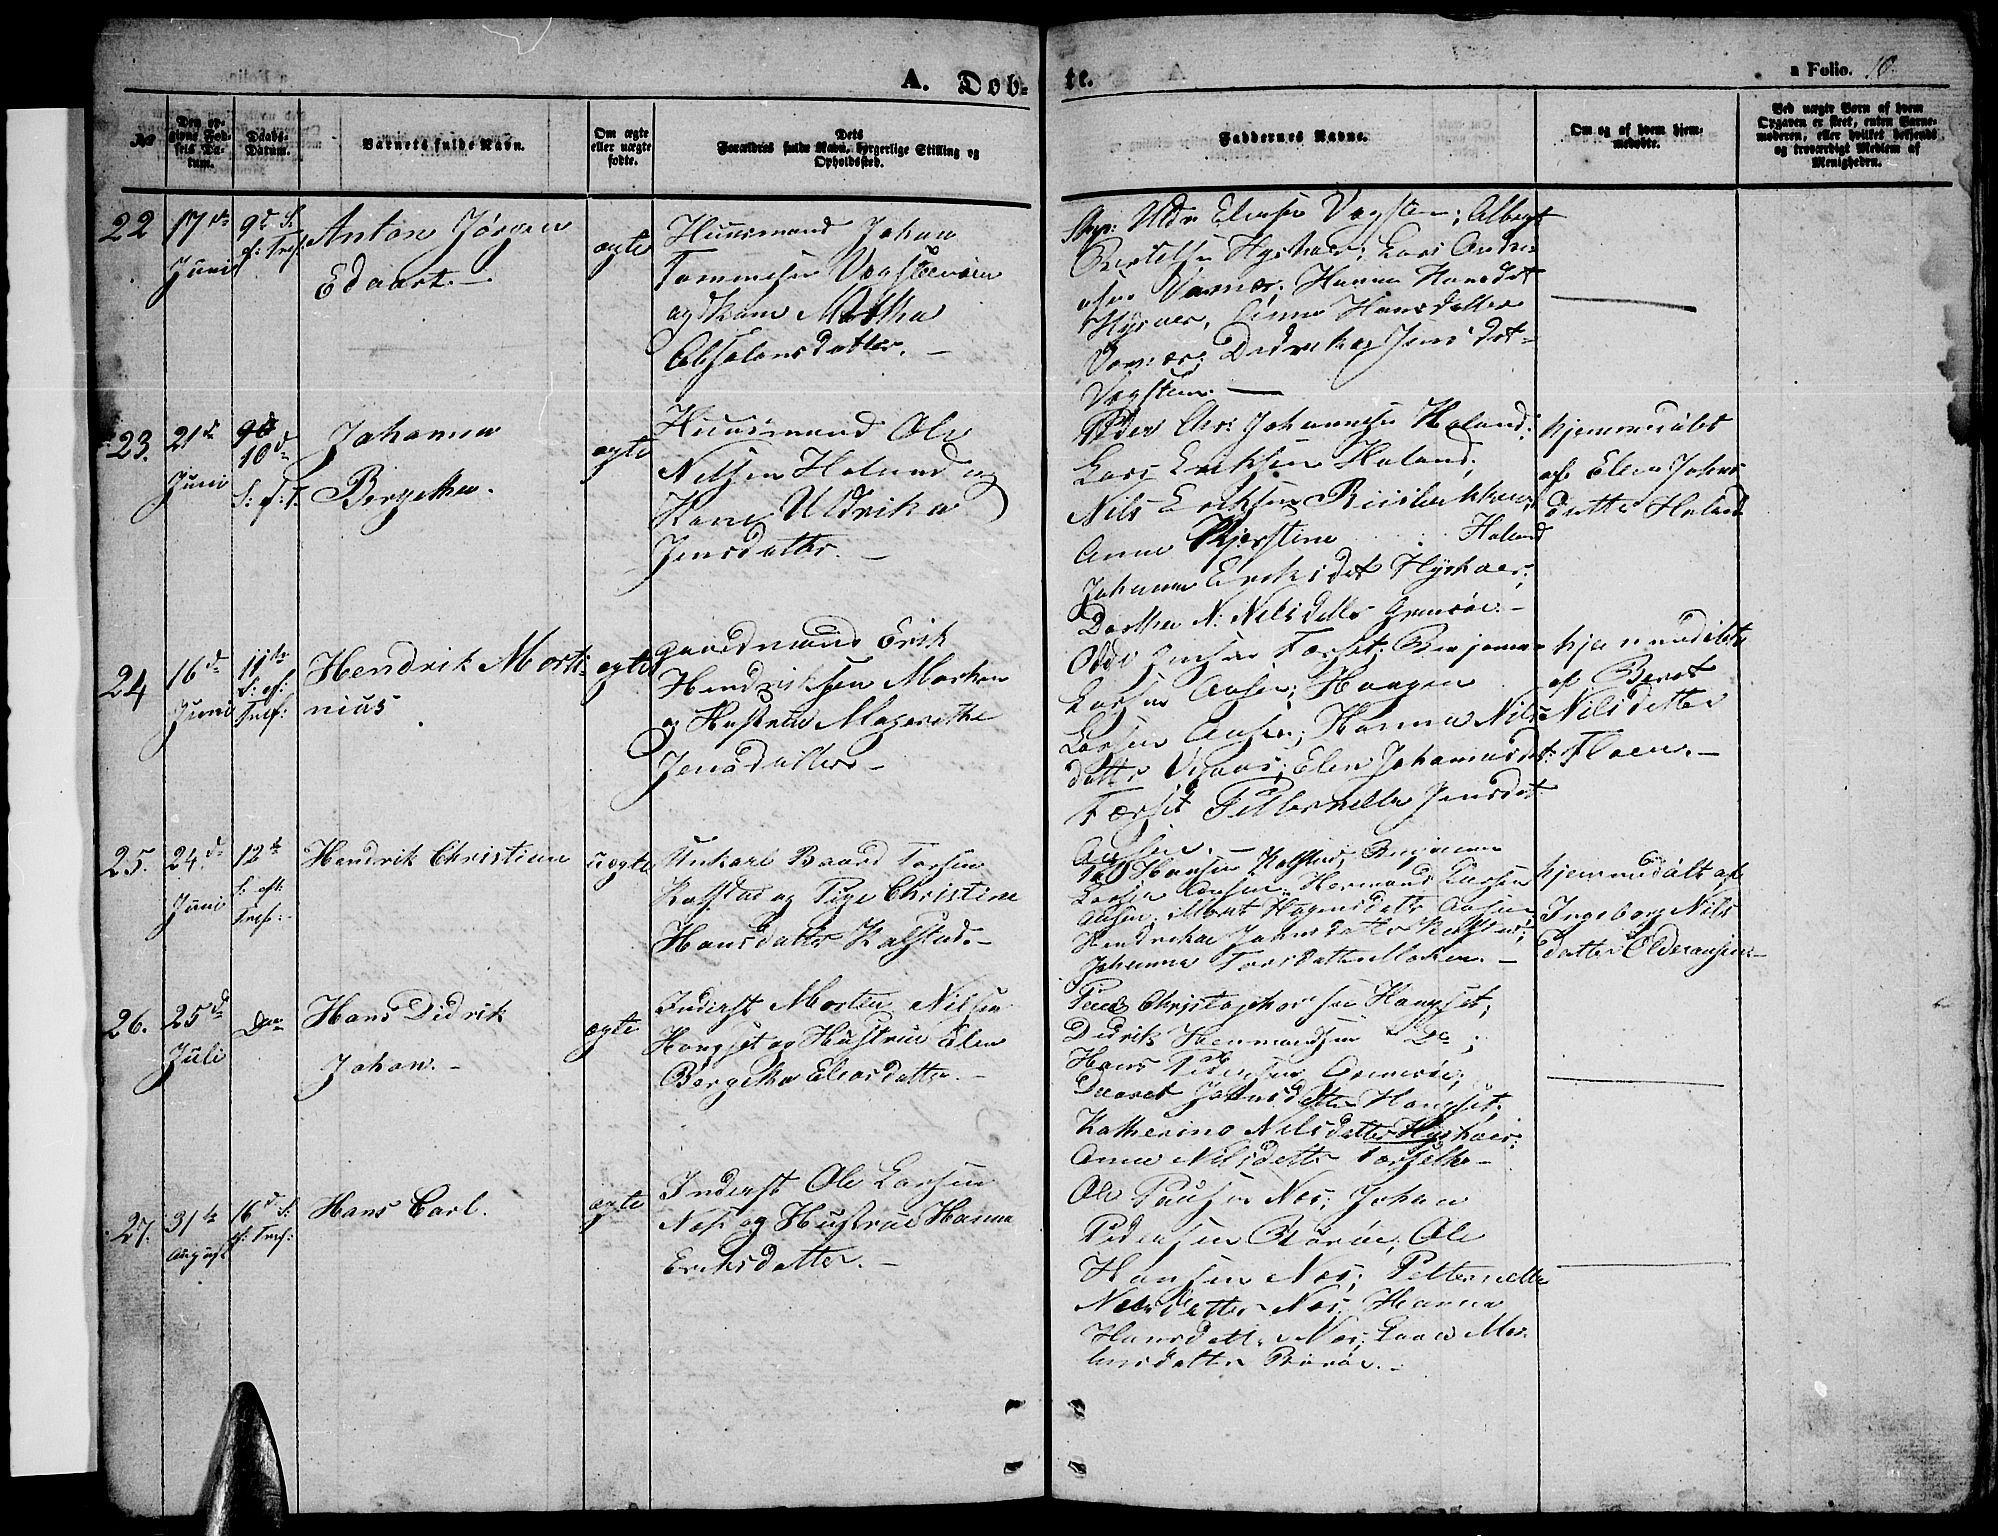 A. Dob=
te.
a Folio. 10.
No
Den op-
givne Fød-
sels Da-
tum.
Daabs-
Datum.
Barnets fulde Navn.
Om ægte
eller uægte
fødte.
Dets
Forældres fulde Navn, borgerlige Stilling og
Opholdssted.
Faddernes Navne.
Om og af hvem hjem-
medøbte.
Ved uægte Børn af hvem
Opgaven er skeet, enten Barne-
moderen, eller hvilket bekjendt
og troværdigt Medlem af
Menigheden.
22
17de
Juni
9d S.
ef: Tref:
Anton Jørgen
Edaart.
ægte
Huusmand Johan
Tommesen Vegsteenöen
og Kone Martha
Absalonsdatter.
Elensen Vegsten; Albegt
Bertelsen Hysvær; Lars Andre-
asen Værnes; Hanna Hansdat
Hysvær, Anne Hansdatter
Didrika Jensdat=
Vegsteen.
23.
21de
Juni
10de
S: ef: T.
Johanna
Birgethea.
ægte
Huusmand Ole
Nilsen Holand og
Kone Uldrika
Jensdatter.
Peder Chr: Johannesen Holand;
Lars Eriksen Holand;
Nils Eriksen
Anne Kjerstine Holand
Johanna Eriksdat Hysvær;
Dorthea N: Nilsdatter
hjemmedöbt
af Elen Johns
datter Holand
24
16de
Juni
11te
S: ef:
Tref:
Hendrik Morti-
nius
ægte
Gaardmand Erik
Hendriksen Marken
og Hustrue Magrethe
Jensdatter
Jensen Færset; Benjamin
Larsen Aasen; Haagen
Larsen Aasen; Hanna Nils-
datter Elen Johannesdat:
Færset Petternelle Jensdat
Aasen.
hjemmedöbt
af Beret
Nilsdatter
Floen.
25.
24de
Juni
12te
S: eft:
Tref:
Hendrik Christian
uægte
Unkarl Baard Torsen
Kalstad og Pige Christine
Hansdatter Kalstad.
Hansen Kalstad; Benjamin
Larsen Aasen; Hermand Larsen
Aasen; Marit Hagensdatter Aasen
Hendrikka Johnsdatter Kalstad;
Johanna Torsdatter Marken.
hjemmedöbt af
Ingeborg Nils
datter Olderansen
26.
25d
Juli
Hans Didrik
Johan.
ægte
Inderst Morten Nilsen
Hongset og Hustrue Elen
Bergetha Eliasdatter.
Paul Christophersen Hongset;
Didrik Hermandsen Do;
Hans Pedersen
Johnsdatter Hongset;
Katherine Nilsdatter Hysvær;
Anne Nilsdatter
27.
31te
August
16d S:
ef: Tref:
Hans Carl.
ægte
Inderst Ole Larsen
Næs og Hustrue Hanna
Eriksdatter.
Ole Paulsen Næs; Johan
Pedersen Rörøe, Ole
Hansen Næs; Petternella
Nilsdatter Næs, Hanna
Hansdatter Næs;
datter Rörøe.